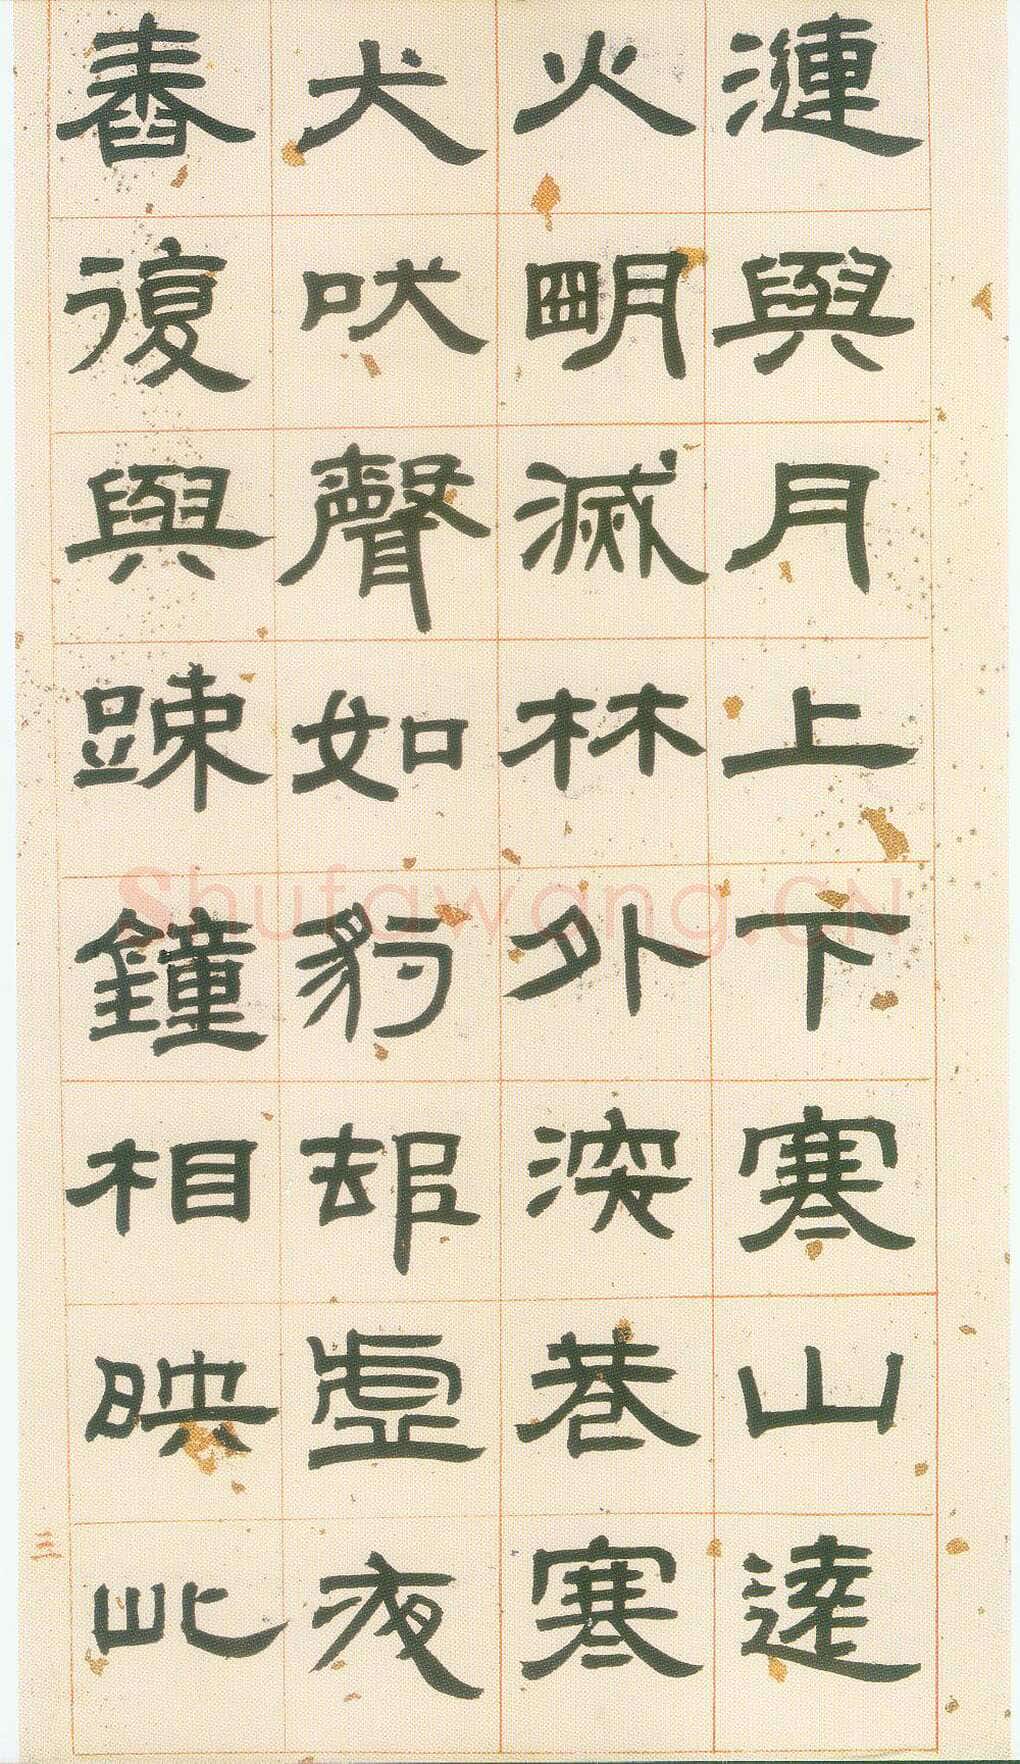 漣與月上下寒山遠
火明滅林外深巷寒
犬吠聲如豹邨虛夜
舂復與疎鐘相暎此
三
Shufawang.CN